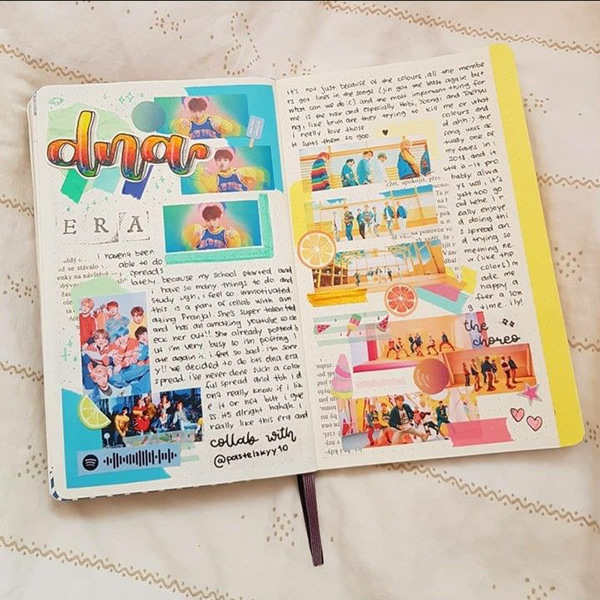 dna
ERA
I havent been
able to do
spreads
lately because my school started and
I have so many things to do and
study ugh, i feel so unmotivated
this is a part of collab with am
azing Pranjal. She's super talented
and has an amazing youtube so ch
eck her out! She already posted b
ut i'm very busy so i'm posting l
ate again :c i feel so bad! i'm sorr
y!! we decided to do bts dna era
spread. i've never done such a color
ful spread and tbh i d
ont really know if i lik
e it or not but i gue
ss it's alright hahah i
really like this era and
collab with
@pastelskyy10
it's not just because of the colours. all the membe
rs got lines in the songs (jin got the least again but
what can we do :c) and the most important thing for
me is the hair and especially Hobi, Yoongi and Taehyu
ng, like bruh are they trying to kill me or what
i really love those colours and
it suits them so goo d ahh :) the
song was ac
tually one of
my faves in
2017 and it
sta
pro
bably alwa
ys will, it's
just too go
od hehe. I r
eally enjoye
d doing thi
s spread an
d trying so
mething ne
w (like the
colors) m
ade me
happy a
fter a lon
g time. ily!
the
choreo